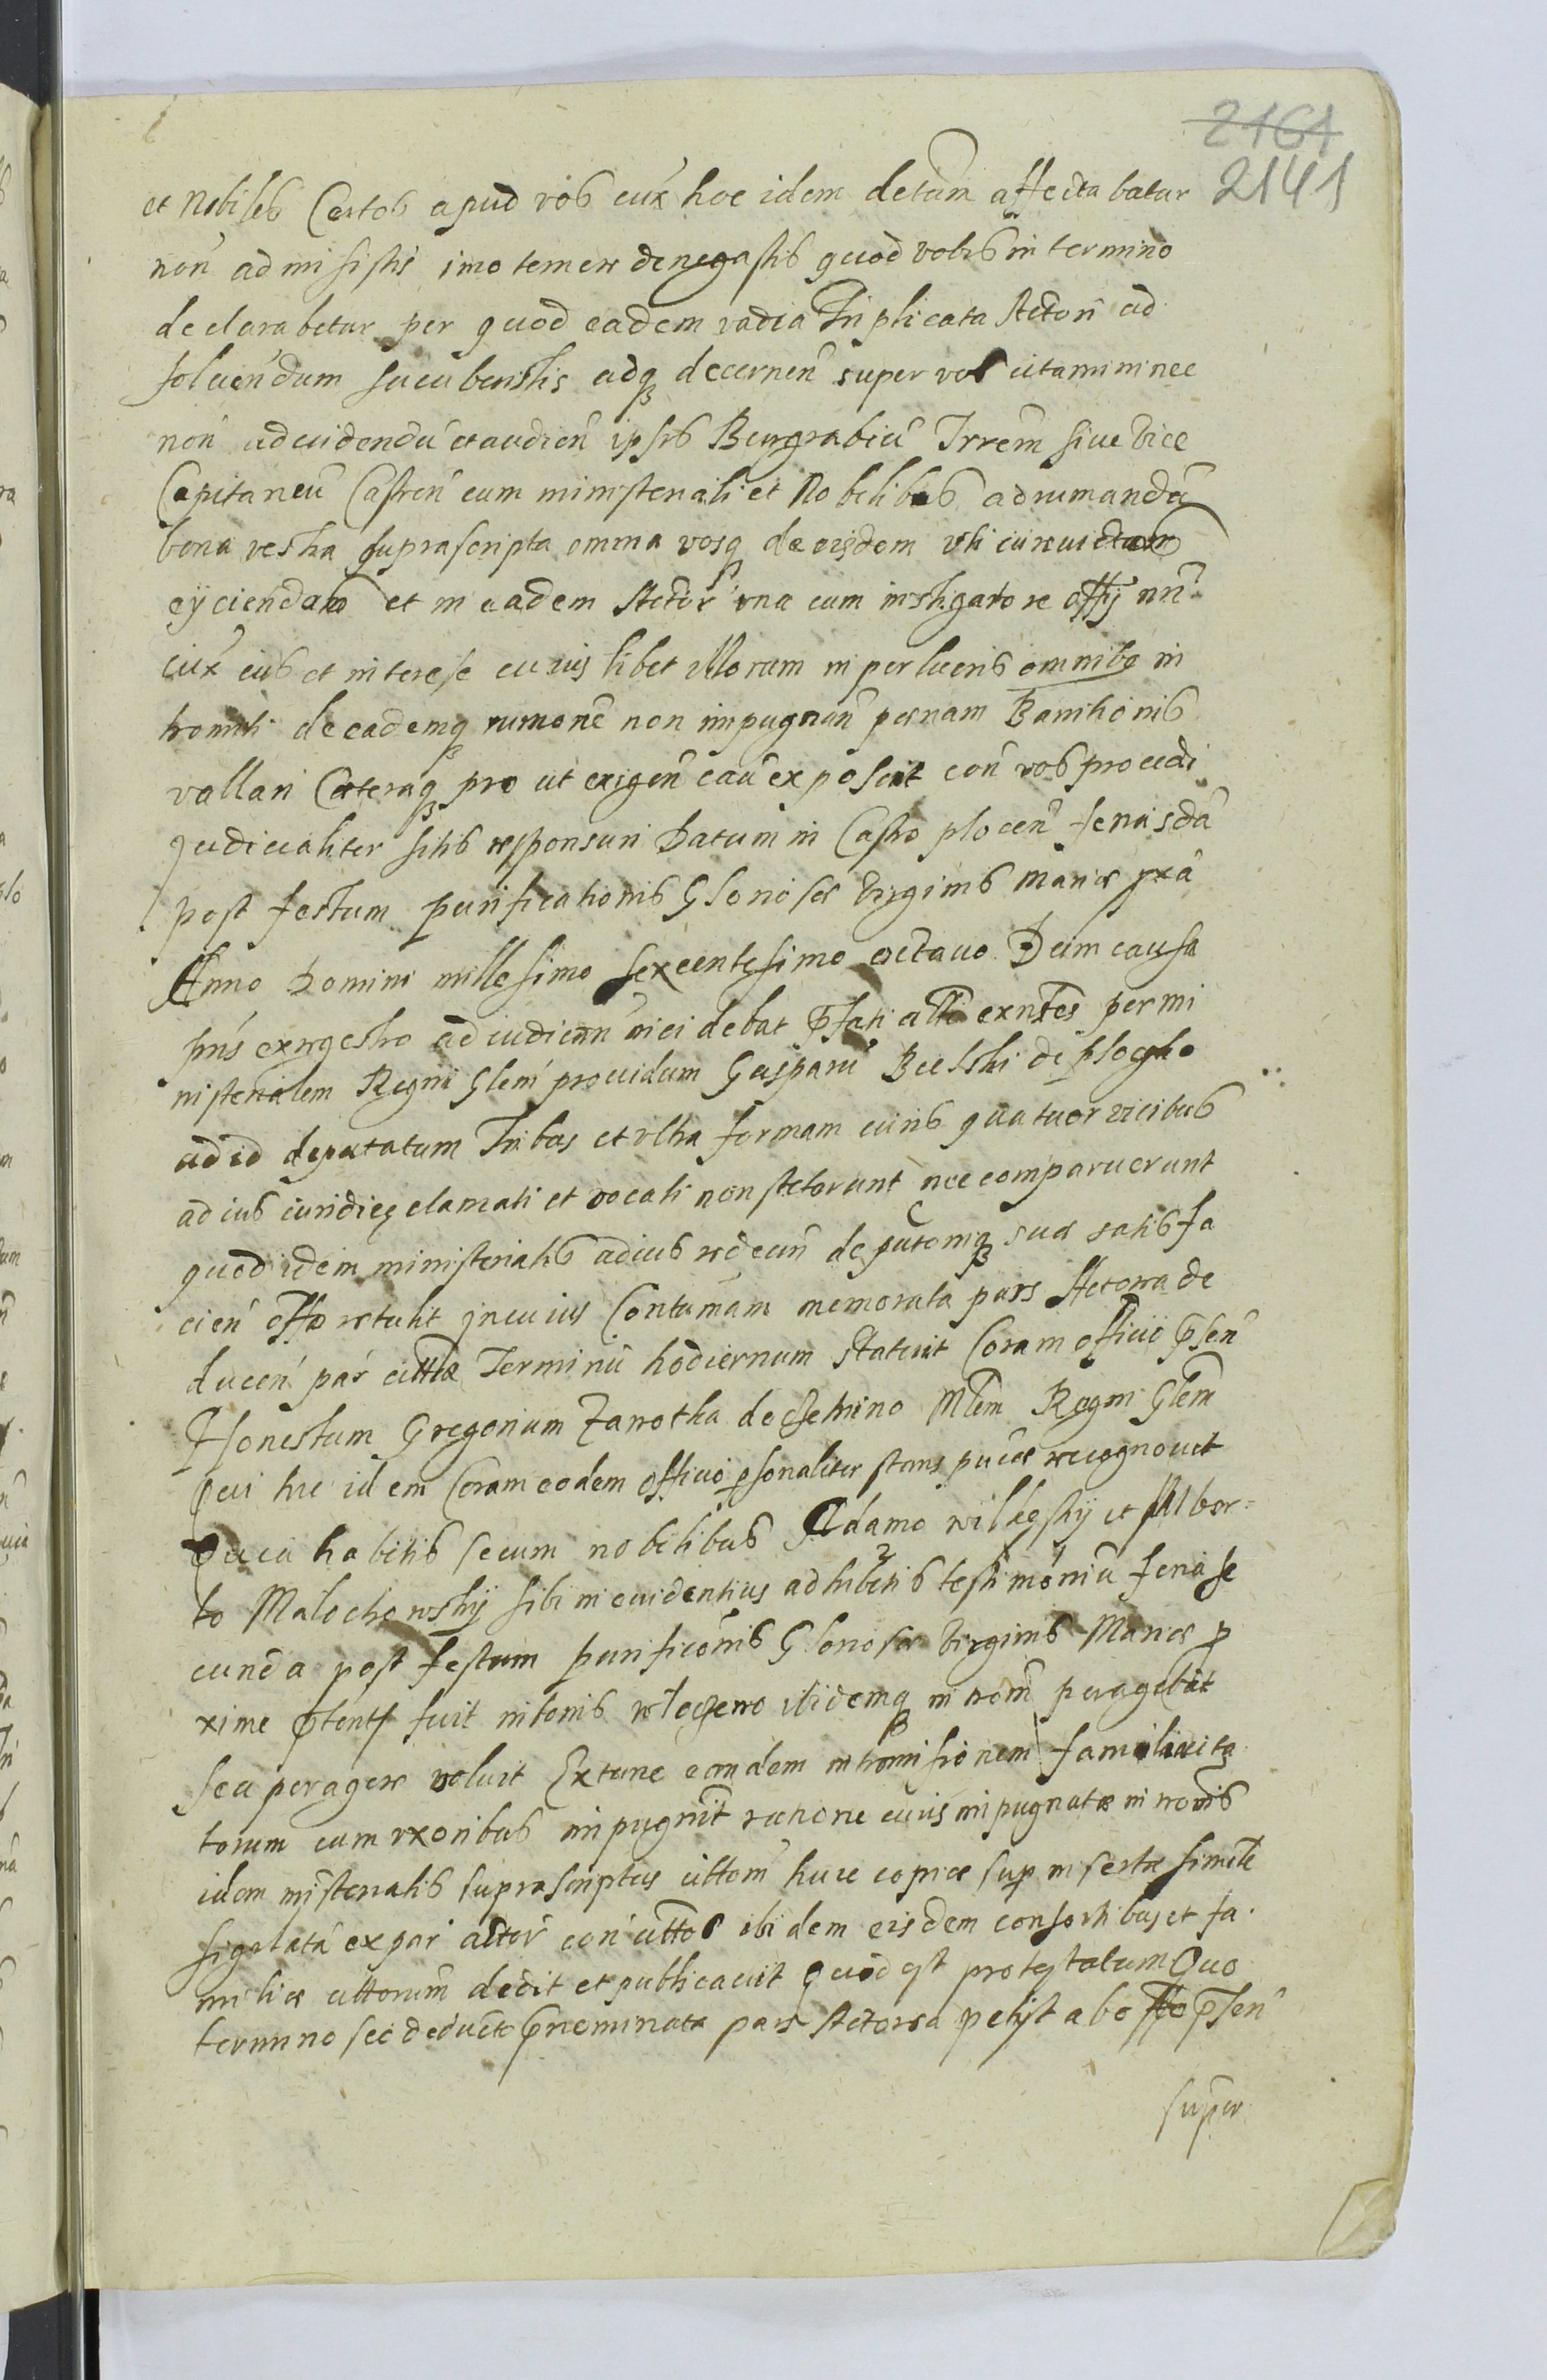 2161
2141
et Nobiles Certos apud vos cũx hoc idem detam̃ affectabatur
non̄ admisistis imo temere denegastis quod vobis in termino
declarabitur per quod eadem vadia Triplicata Actori ad
soluendum sucubuistis adq₃ decernen̄ super vos citamini nec
non̄ ad videndū et audien̄ ipsis Burgrabiū Irrem̄ siue Vice
Capitaneū Castren̄ cum ministeriali et Nobilibus ad rumandā
bona vestra suprascripta omnia vosq₃ de eisdem vti
eijciendam et in eadem Actor̄ vna cum instigatore offÿ nn̄
cũx eius et interesse cuius libet illorum in perlucris omnibo in
tromitti de eademq₃ rumone non impugnan̄ pœnam Bannitionis
vallari Cæteraq₃ pro ut exigen̄ cau exposcit con̄ vos procedi
Judicialiter sitis responsuri Datum in Castro plocen̄ feria 2dā
post festum purificationis Gloriosæ Virginis Mariæ pxā
Anno Domini millesimo sexcentesimo octauo Dum causa
pn̄s ex rgestro ad iudican̄ incidebat p̄fati citti exn̄tes permi
nisterialem Regni Glem̄ prouidum Gaspari Bielski de plocho
ad id deputatum Tribus et vltra formam iuris quatuor vicibus
ad ius iuridicę clamati et vocati non steterunt nec comparuerunt
quod idem ministerialis ad ius redeun̄ deputōniq₃ suæ satisfa
cien̄ offo retulit In cuius Contumam̄ memorata pars Actorea de
ducen̄ par̄ cittæ Terminū hodiernum Statuit Coram officio p̄sen̄
Honestum Gregorium Zarotka de Mlem̄ Regni Glem̄
Qui hic idem Coram eodem officio p̄sonaliter stans pu͞cæ recognouit
Quia habitis secum nobilibus Adamo wilkęskÿ et Alber=
to Malochowskÿ sibi in euidentius adhibitis testimoniū feria se
cunda post festum purificōnis Gloriosæ Virginis Mariæ p
xime p̄tent fuit in bonis ibidemq₃ in trom̄ peragebat
seu peragere voluit Extunc eandem intromissionem famılia cita
torum cum vxoribus impugnit̄ ratione cuius impugnatæ introm̄is
idem ministerialis suprascriptus cittom̄ huic copiæ sup̄ insertæ simile
sigelatā ex par̄ actor̄ con̄ cittos ibidem eisdem consortibus et fa
miliæ cittorum̄ dedit et publicauit Quod est protestatum Quo
termino sic deducto p̄nominata pars Actorea petijt ab offo p̄sen̄
super